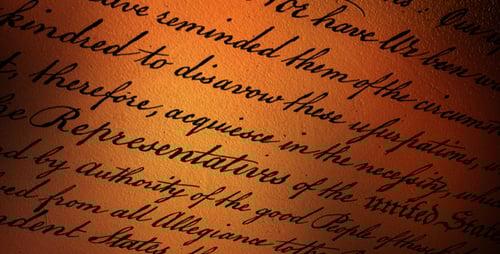 : Our
Nor have We been
have reminded them of the circums
kindred to disavow these usurpations,
t, therefore, acquiesce in the necessity, whi
the Representatives of the united State
nd by authority of the good People of these
ved from all Allegiance to the
ndent States,